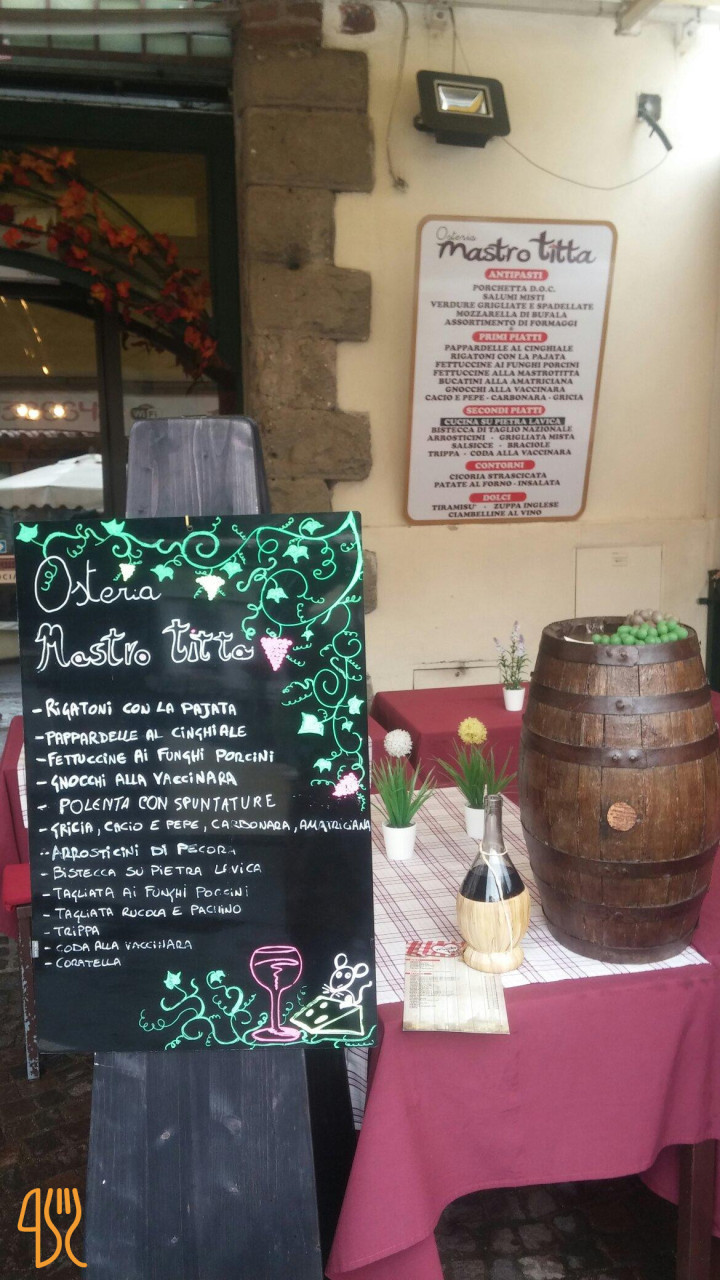 Osteria
Mastro Titta
ANTIPASTI
PORCHETTA D.O.C.
SALUMI MISTI
VERDURE GRIGLIATE E SPADELLATE
MOZZARELLA DI BUFALA
ASSORTIMENTO DI FORMAGGI
PRIMI PIATTI
PAPPARDELLE AL CINGHIALE
RIGATONI CON LA PAJATA
FETTUCCINE AI FUNGHI PORCINI
FETTUCCINE ALLA MASTROTITTA
BUCATINI ALLA AMATRICIANA
GNOCCHI ALLA VACCINARA
CACIO E PEPE - CARBONARA - GRICIA
SECONDI PIATTI
CUCINA SU PIETRA LAVICA
BISTECCA DI TAGLIO NAZIONALE
ARROSTICINI - GRIGLIATA MISTA
SALSICCE - BRACIOLE
TRIPPA - CODA ALLA VACCINARA
CONTORNI
CICORIA STRASCICATA
PATATE AL FORNO - INSALATA
DOLCI
TIRAMISU' - ZUPPA INGLESE
CIAMBELLINE AL VINO
Wi Fi
Osteria
Mastro Titta
- RIGATONI CON LA PAJATA
- PAPPARDELLE AL CINGHIALE
- FETTUCCINE AI FUNGHI PORCINI
- GNOCCHI ALLA VACCINARA
- POLENTA CON SPUNTATURE
- GRICIA, CACIO E PEPE, CARBONARA, AMATRICIANA
- ARROSTICINI DI PECORA
- BISTECCA SU PIETRA LAVICA
- TAGLIATA AI FUNGHI PORCINI
- TAGLIATA RUCOLA E PACHINO
- TRIPPA
- CODA ALLA VACCINARA
- CORATELLA